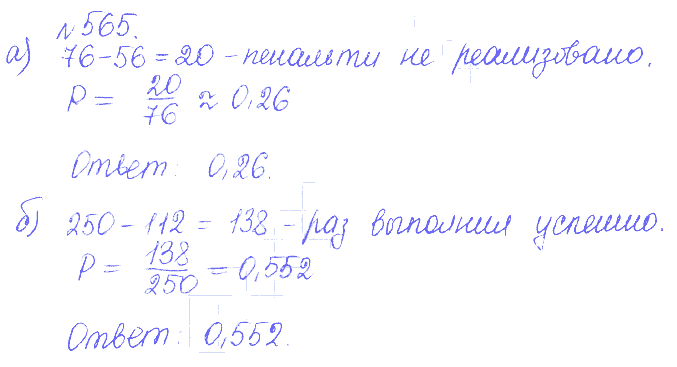 №565.
а) 76-56=20 - пенальти не реализовано.
P = 20/76 ≈ 0,26
Ответ: 0,26.
б) 250 - 112 = 138 - раз выполнил успешно.
P = 138/250 = 0,552
Ответ: 0,552.